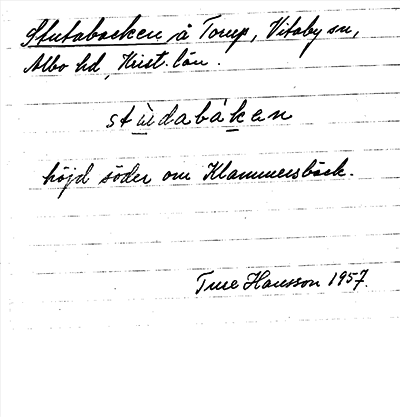 Stutabacken å Torup, Vitaby sn,
Albo hd, Krist. län.
stùdabákan
höjd söder om Klammersbäck.
Ture Hansson 1957.